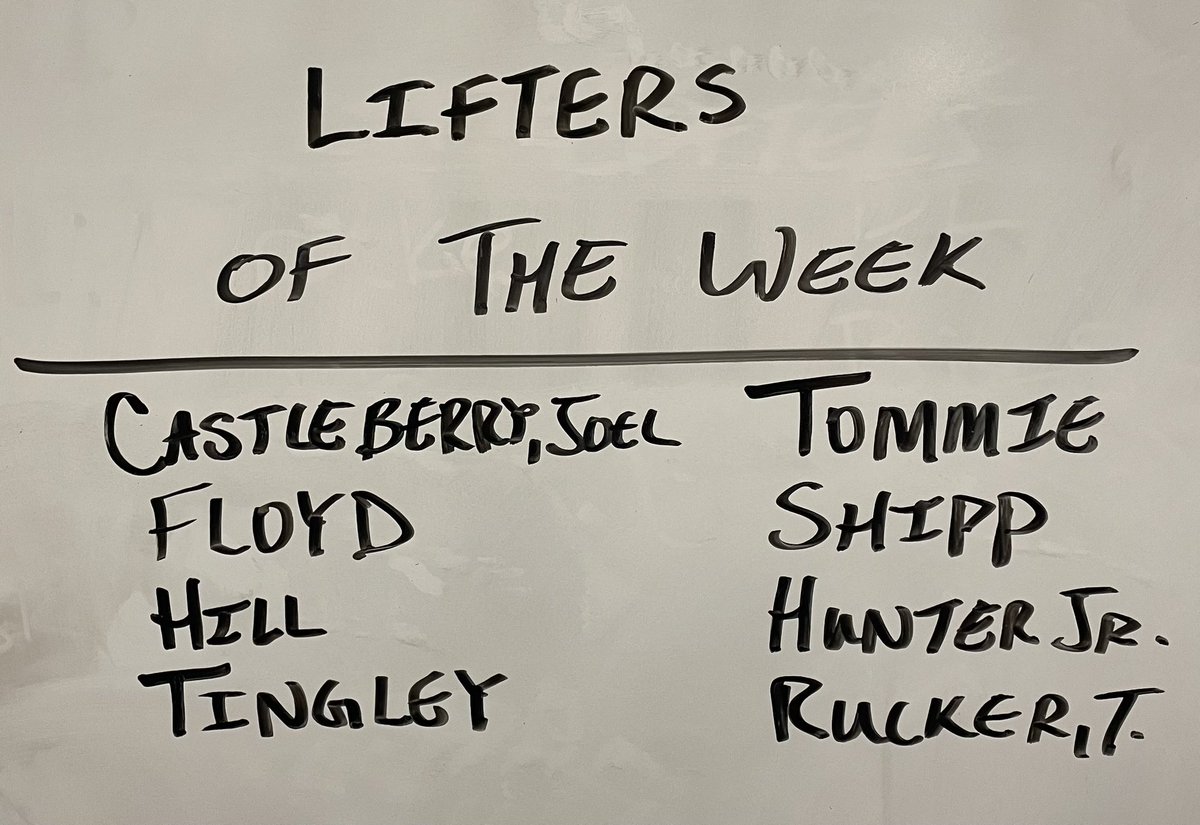 LIFTERS
OF THE WEEK
CASTLEBERRY, JOEL
FLOYD
HILL
TINGLEY
TOMMIE
SHIPP
HUNTER JR.
RUCKER, T.